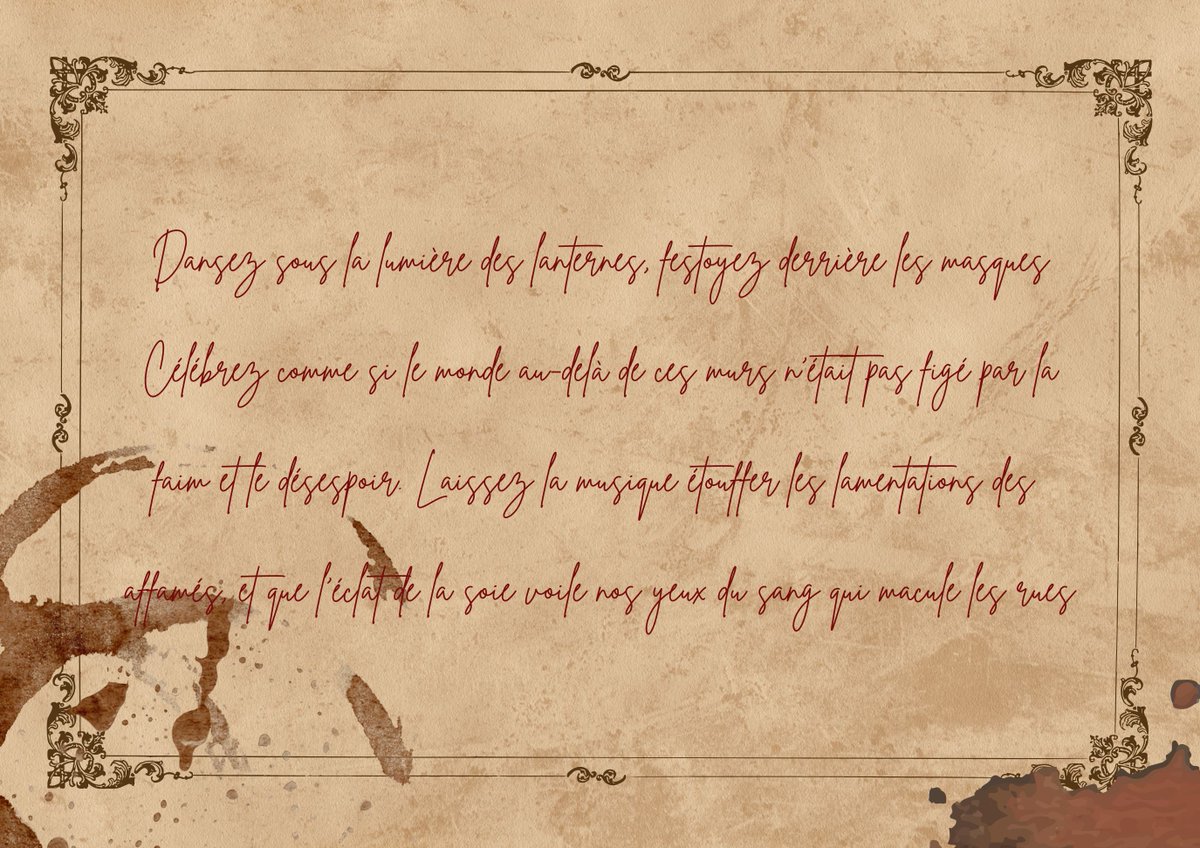 Dansez sous la lumière des lanternes, festoyez derrière les masques
Célébrez comme si le monde au-delà de ces murs n'était pas figé par la
faim et le désespoir. Laissez la musique étouffer les lamentations des
affamés, et que l'éclat de la soie voile nos yeux du sang qui macule les rues